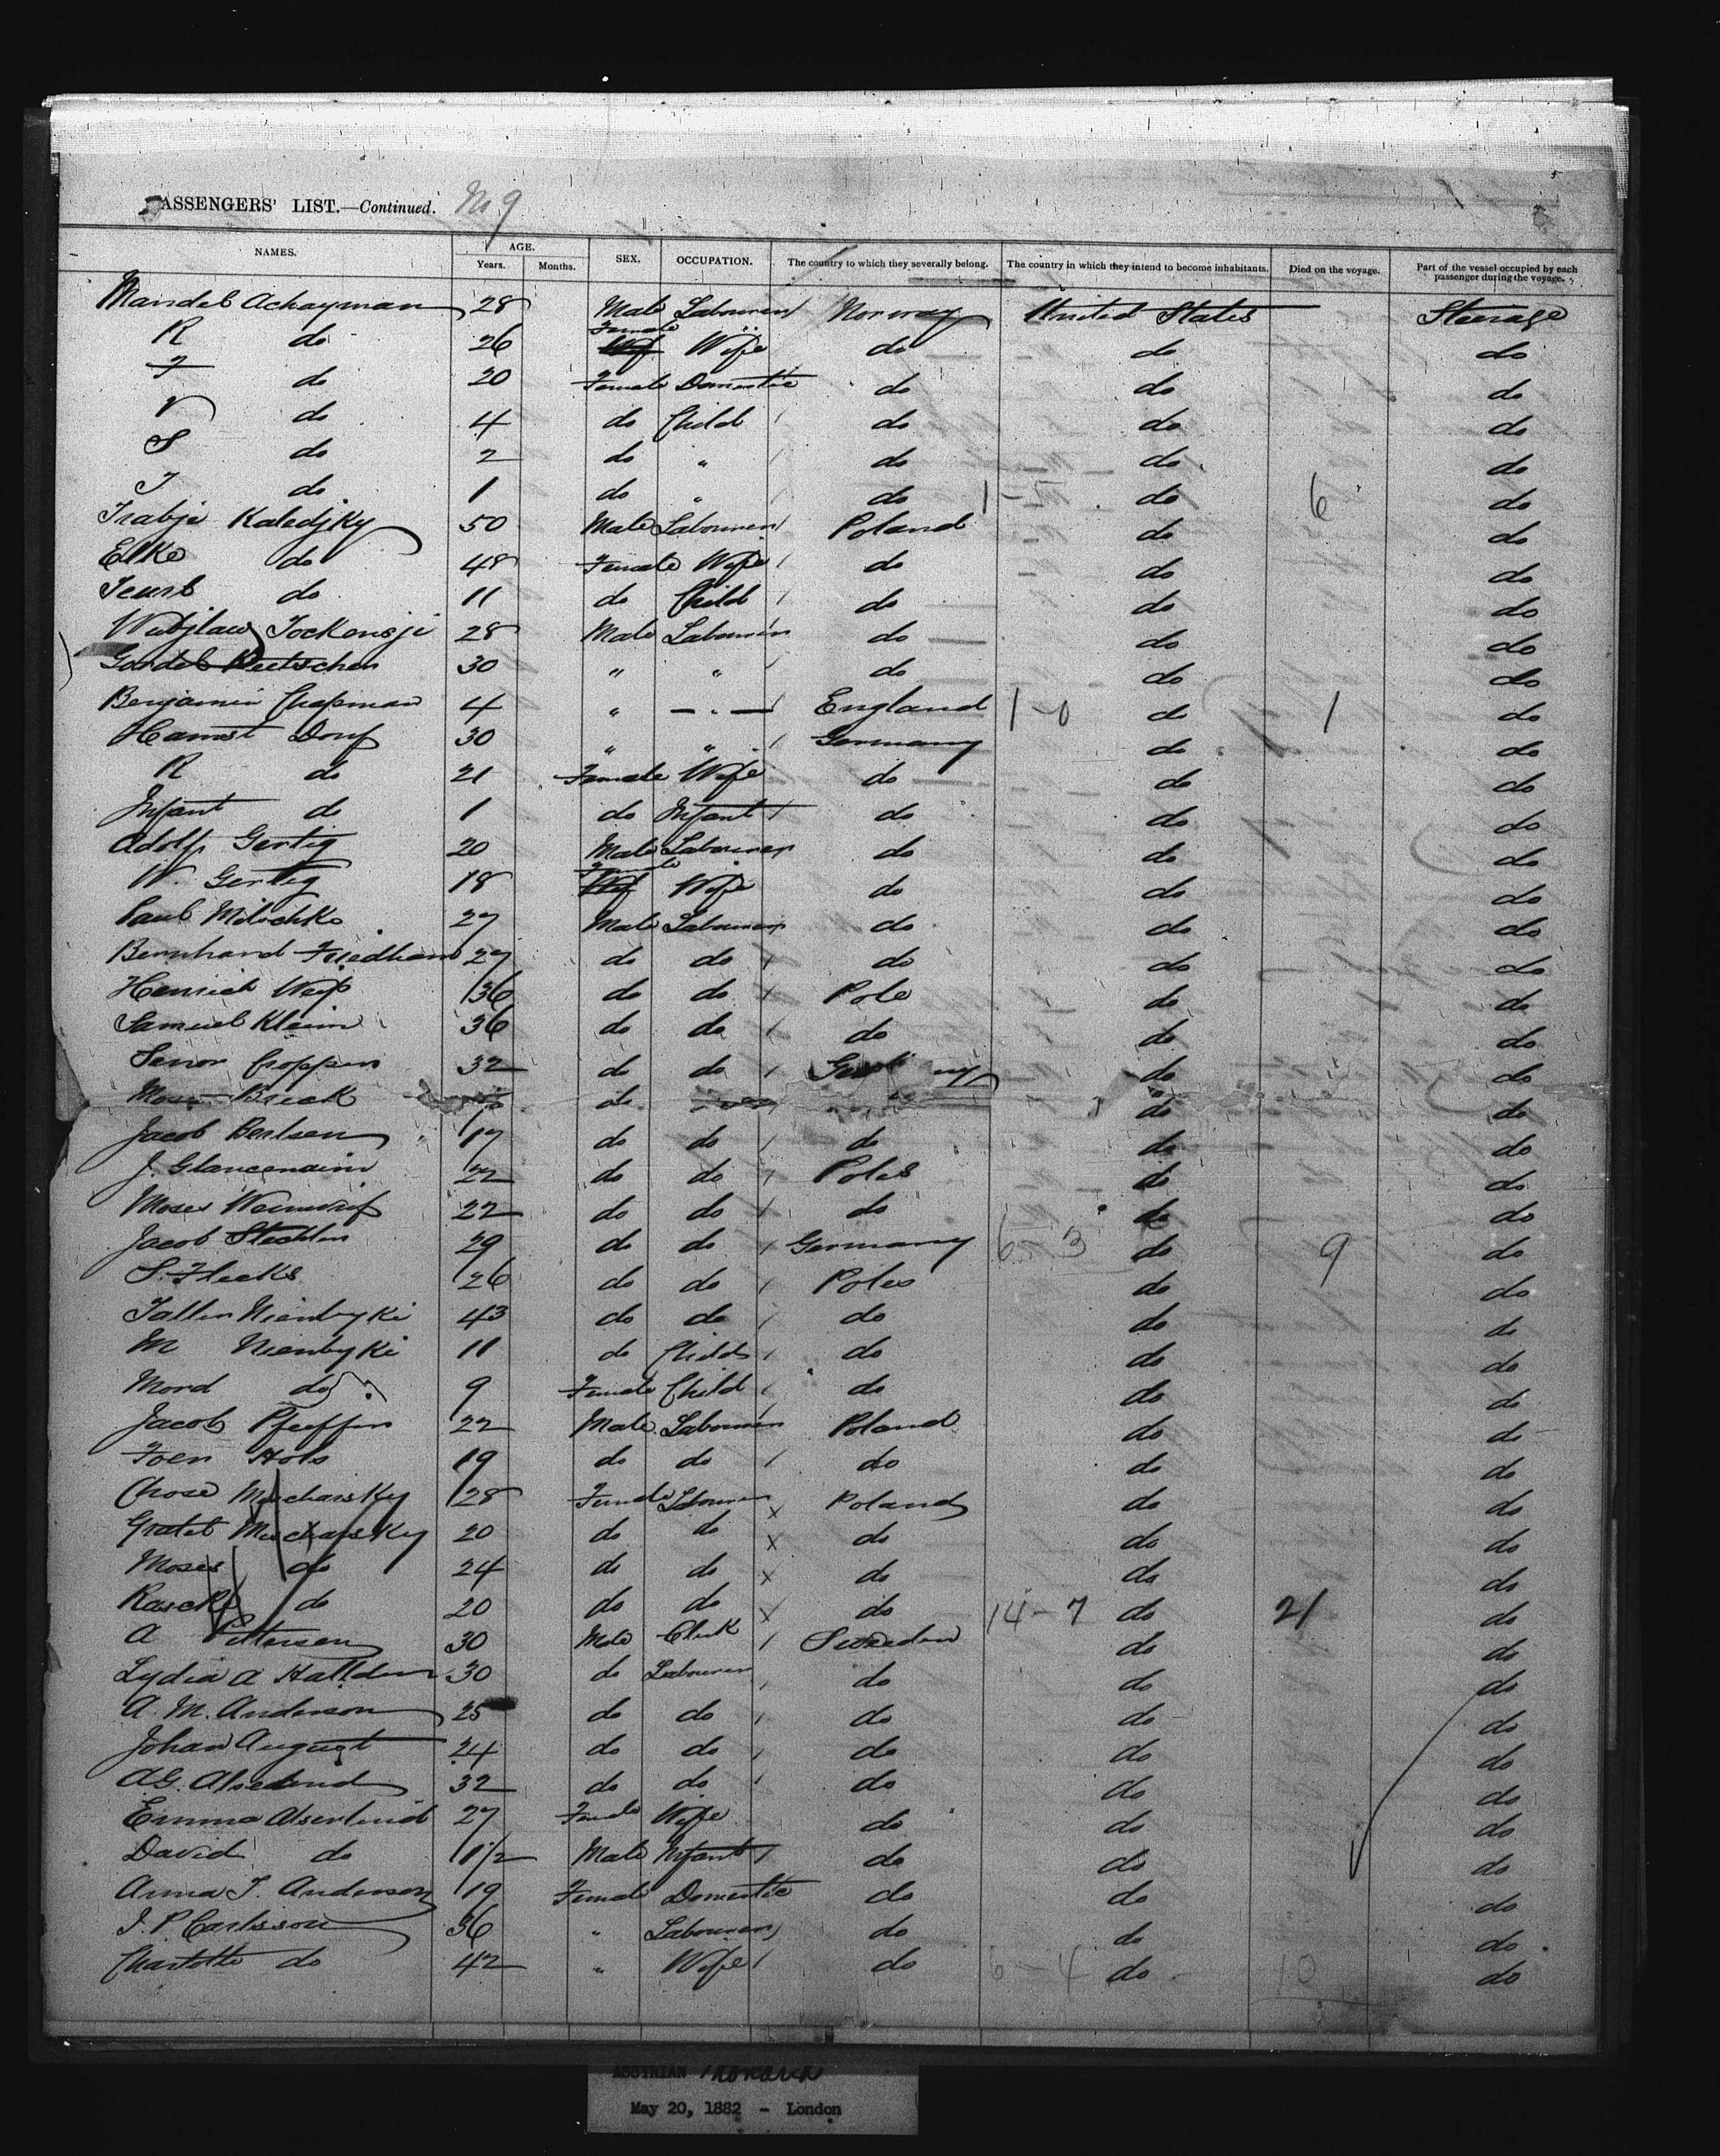 PASSENGERS' LIST.—Continued. No 9
NAMES. AGE. SEX. OCCUPATION. The country to which they severally belong. The country in which they intend to become inhabitants. Died on the voyage. Part of the vessel occupied by each passenger during the voyage.
Years. Months.
Mandel Achayman 28 Male Labourer Norway United States Steerage
R do 26 Female Wife do do do
F do 20 Female Domestic do do do
V do 4 do Child do do do
S do 2 do " do do do
J do 1 do " do 1-5 do 6 do
Kaledjky 50 Male Labourer Poland do do
Elke do 48 Female Wife do do do
do 11 do Child do do do
Tockensji 28 Male Labourer do do do
30 " " do do do
Benjamin Chapman 4 " — " — England 1-0 do 1 do
Dorf 30 " " Germany do do
R do 21 Female Wife do do do
Infant do 1 do Infant do do do
Adolf Gertig 20 Male Labourer do do do
W. Gertig 18 Female Wife do do do
Paul Milochke 27 Male Labourer do do do
Bernhard 27 do do do do do
Henrich 36 do do Pole do do
Samuel Klein 36 do do do do do
32 do do do do
Moses Breck do do do
Jacob Berlsen 17 do do do do do
J. 22 do do Poles do do
Moses 22 do do do do do
Jacob Stechlin 29 do do Germany 6-3 do 9 do
S. Flecks 26 do do Poles do do
Nienbyki 43 do do do do do
M Nienbyki 11 do Child do do do
Mord do 9 Female Child do do do
Jacob Pfeiffer 22 Male Labourer Poland do do
Hols 19 do do do do do
Chose Mucharsky 28 Female Labourer x Poland do do
Mucharsky 20 do do x do do do
Moses do 24 do do x do do do
do 20 do do x do 14-7 do 21 do
A Pettersen 30 Male Clerk Sweden do do
Lydia A Hallden 30 do Labourer do do do
A. M. Anderson 25 do do do do do
Johan August 24 do do do do do
A.G. 32 do do do do do
Emma 27 Female Wife do do do
David do 1 1/2 Male Infant do do do
Anna S. Anderson 19 Female Domestic do do do
J. P. Carlsson 36 " Labourer do do do
Charlotte do 42 " Wife do 6-4 do 10 do
ASSYRIAN Monarch
May 20, 1882 - London